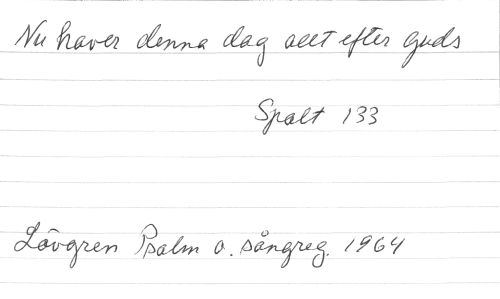 Nu haver denna dag allt efter Guds
Spalt 133
Lövgren Psalm o. sångreg. 1964